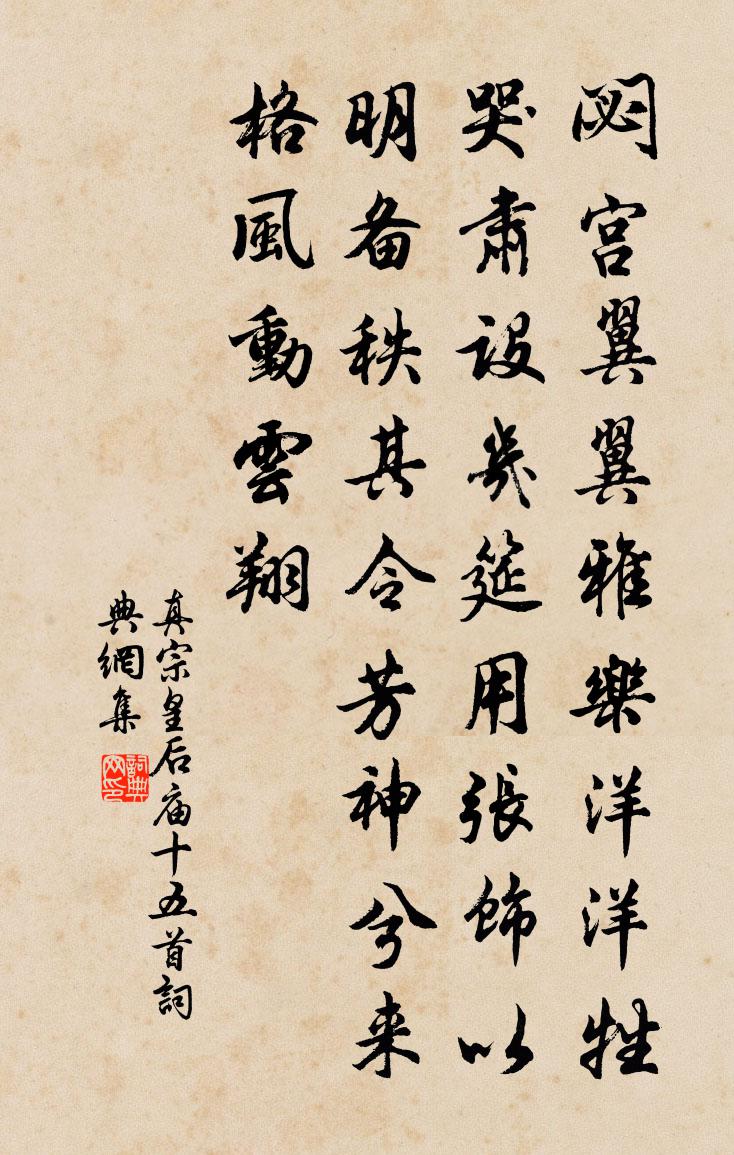 閟宫翼翼雅樂洋洋牲
器肅設幾筵用張飾以
明备秩其令芳神兮来
格風動雲翔
真宗皇后庙十五首詞
典網集
詞典
网印